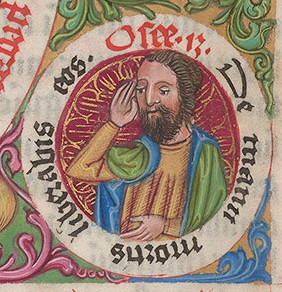 Osee. 13.
De manu mortis liberabis eos.